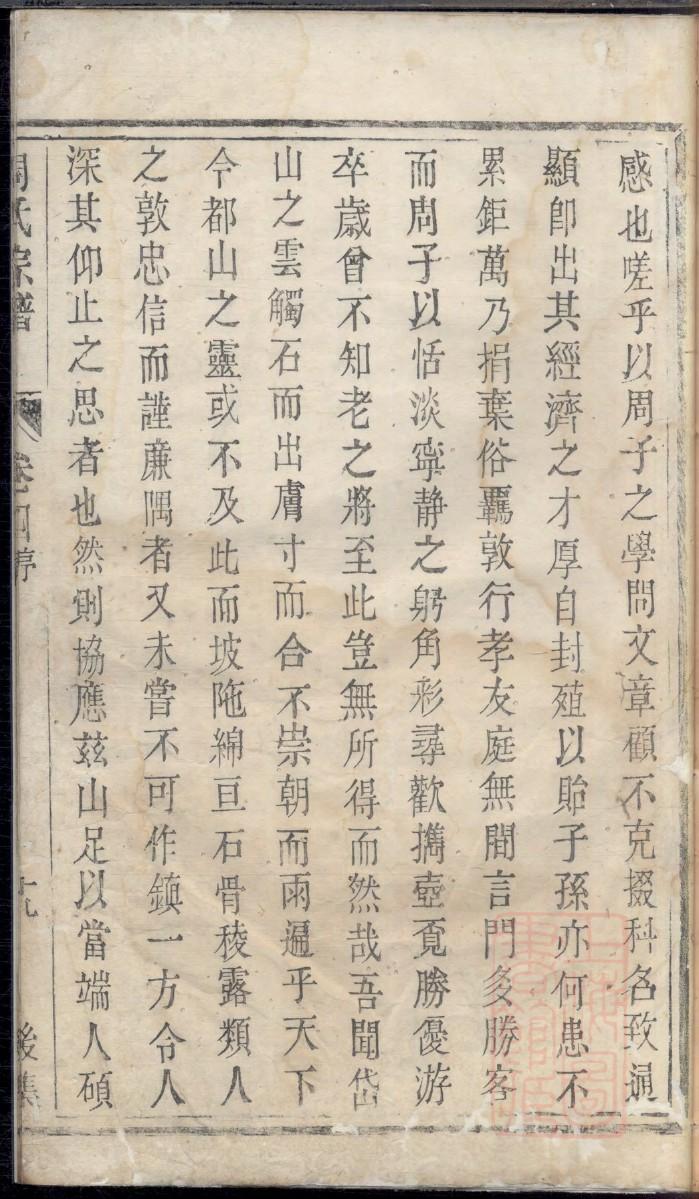 感也嗟乎以周子之學問文章顧不克掇科名致通
顯卽出其經濟之才厚自封殖以貽子孫亦何患不
累鉅萬乃捐棄俗羈敦行孝友庭無間言門多勝客
而周子以恬淡寧静之躬角彩尋歡擕壺覔勝優游
卒歲曾不知老之將至此豈無所得而然哉吾聞岱
山之雲觸石而出膚寸而合不崇朝而雨遍乎天下
今都山之靈或不及此而坡陁綿亘石骨稜露類人
之敦忠信而謹廉隅者又未嘗不可作鎮一方令人
深其仰止之思者也然則協應兹山足以當端人碩
周氏宗譜 卷四序 十九 後集